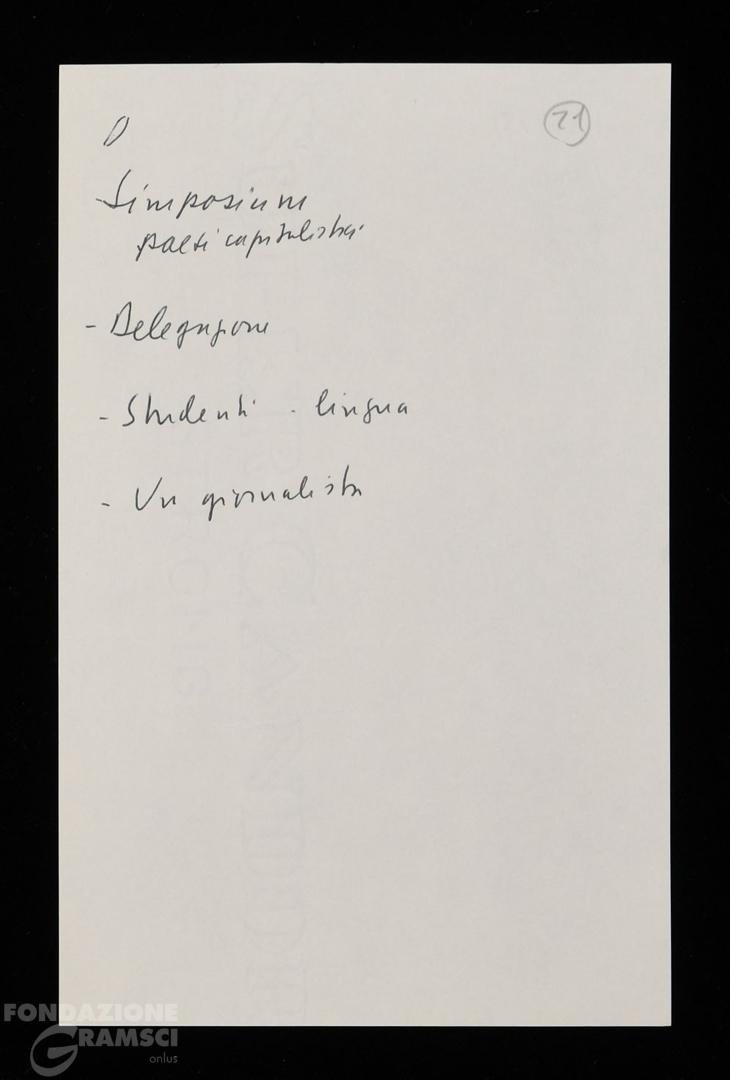 D
21
- Simposium
paesi capitalisti
- Delegazione
- Studenti - lingua
- Un giornalista
FONDAZIONE
GRAMSCI
onlus